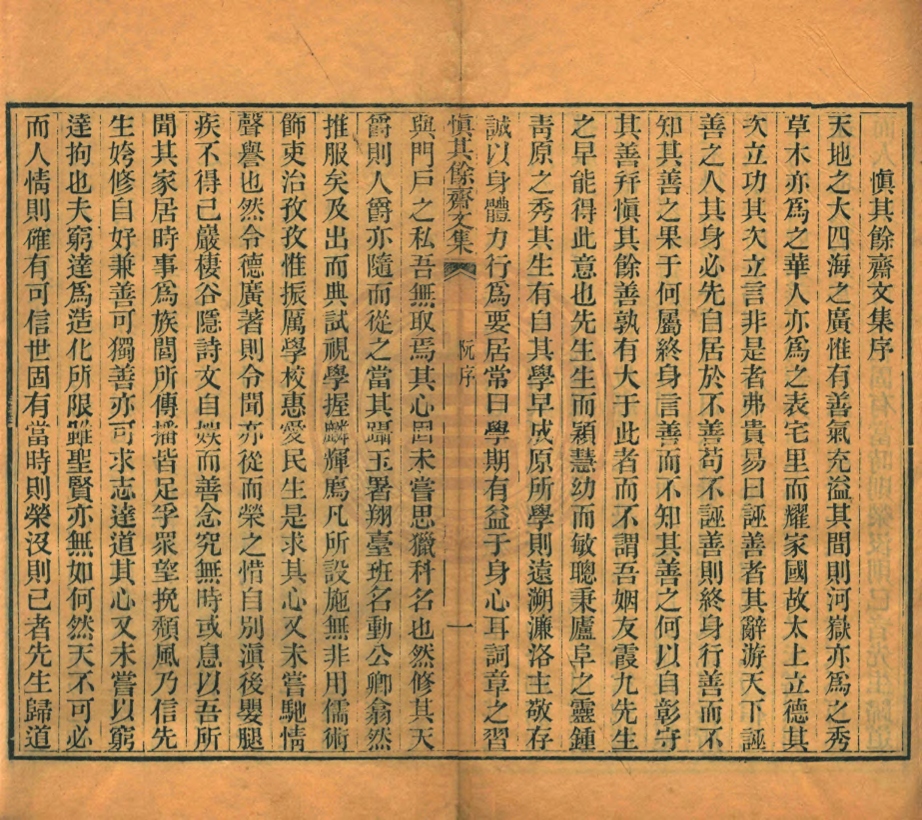 愼其餘齋文集序
天地之大四海之廣惟有善氣充溢其間則河嶽亦爲之秀
草木亦爲之華人亦爲之表宅里而耀家國故太上立德其
次立功其次立言非是者弗貴易曰誣善者其辭游天下誣
善之人其身必先自居於不善苟不誣善則終身行善而不
知其善之果于何屬終身言善而不知其善之何以自彰守
其善幷愼其餘善孰有大于此者而不謂吾姻友霞九先生
之早能得此意也先生生而穎慧幼而敏聰秉廬阜之靈鍾
靑原之秀其生有自其學早成原所學則遠溯濂洛主敬存
誠以身體力行爲要居常曰學期有益于身心耳詞章之習
愼其餘齋文集 阮序 一
與門戸之私吾無取焉其心固未嘗思獵科名也然修其天
爵則人爵亦隨而從之當其躡玉署翔臺班名動公卿翕然
推服矣及出而典試視學握麟輝鳬凡所設施無非用儒術
飾吏治孜孜惟振厲學校惠愛民生是求其心又未嘗馳情
聲譽也然令德廣著則令聞亦從而榮之惜自别滇後嬰腿
疾不得已巖棲谷隱詩文自娛而善念究無時或息以吾所
聞其家居時事爲族閭所傳播皆足孚衆望挽頽風乃信先
生姱修自好兼善可獨善亦可求志達道其心又未嘗以窮
達拘也夫窮達爲造化所限雖聖賢亦無如何然天不可必
而人情則確有可信世固有當時則榮沒則已者先生歸道